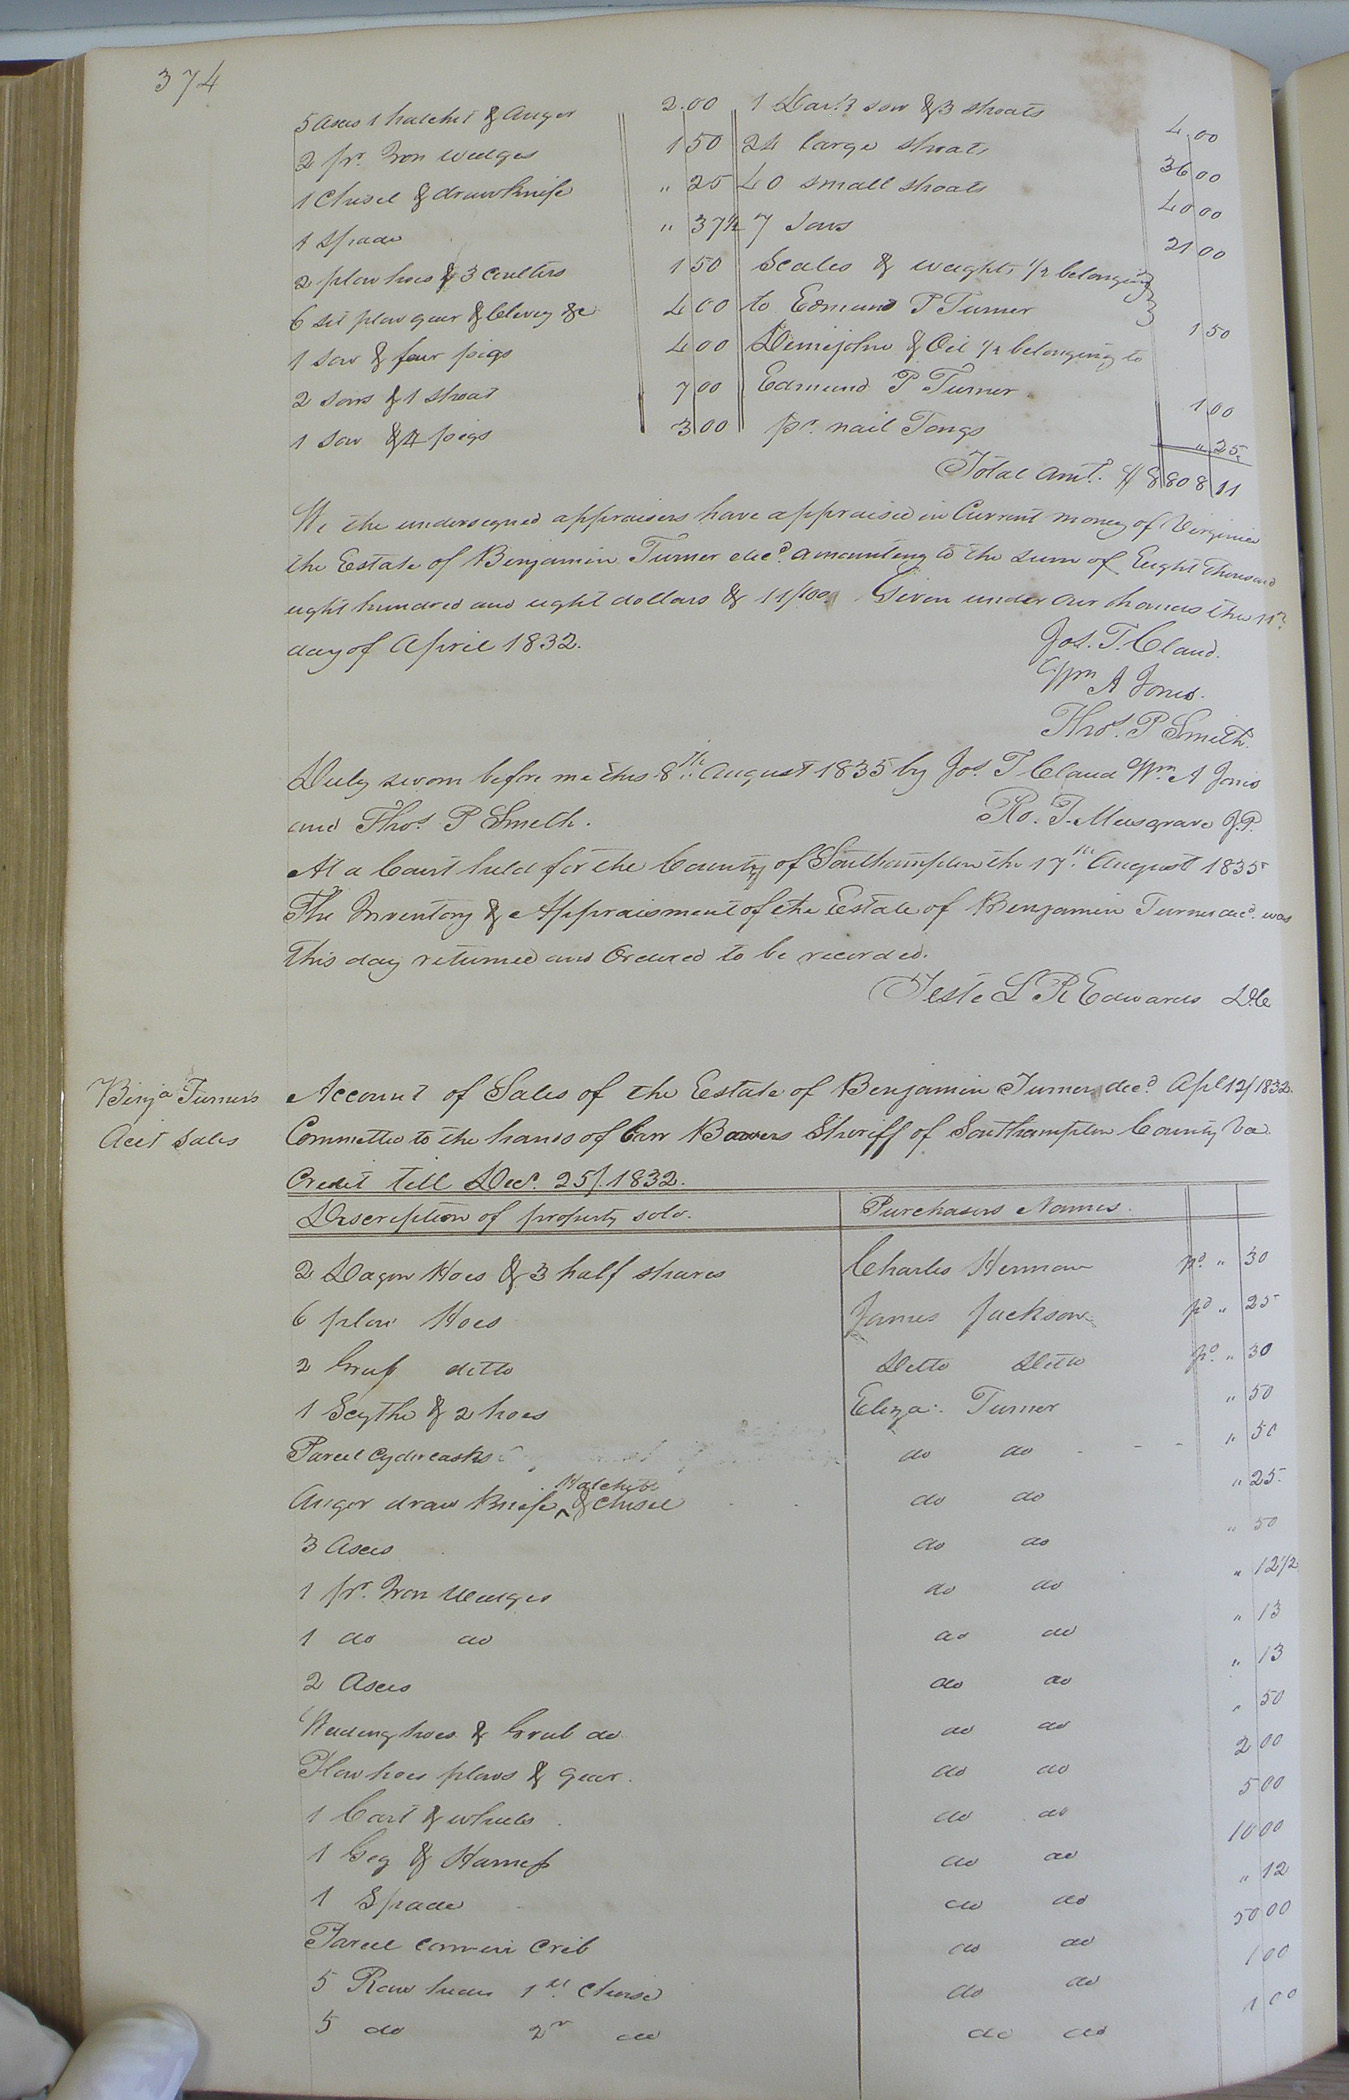 374
5 Axes 1 hatchet & Auger 2.00
2 pr. Iron Wedges 1 50
1 Chisel & drawknife " 25
1 Spade " 37½
2 plow hoes & 3 Coulters 1 50
6 set plow gear & Clevey &c 4 00
1 sow & four pigs 4 00
2 sows & 1 shoat 7 00
1 sow & 4 pigs 3 00
1 sow & 3 shoats 4.00
24 large shoats 36 00
40 small shoats 40 00
7 sows 21 00
Scales & weights 1/2 belonging
to Edmund P Turner 1 50
Demijohn & Oil 1/2 belonging to
Edmund P Turner 1 00
pr. nail Tongs " 25
Total Amt. $ 8808 11
We the undersigned appraisers have appraised in Current money of Virginia
the Estate of Benjamin Turner decd. amounting to the sum of Eight Thousand
eight hundred and eight dollars & 11/100. Given under our hands this 11th
day of April 1832.
Jos. T. Claud.
Wm A Jones.
Thos. P Smith.
Duly sworn before me this 8th August 1835 by Jos. T Claud Wm. A Jones
and Thos. P Smith.
Ro. T. Musgrave J.P.
At a Court held for the County of Southampton the 17th August 1835
The Inventory & Appraisment of the Estate of Benjamin Turner decd. was
this day returned and Ordered to be recorded.
Teste L R Edwards D.C
Benja Turner's
Acct Sales
Account of Sales of the Estate of Benjamin Turner decd. Apl 12/1832.
Committed to the hands of Carr Bowers Sheriff of Southampton County Va.
Credit till Decr. 25/.1832.
Description of property sold. Purchasers Names.
2 Dagon Hoes & 3 half shares Charles Herman pd. " 30
6 plow Hoes James Jackson pd " 25
2 Grub ditto Ditto Ditto pd. " 30
1 Scythe & 2 hoes Eliza: Turner " 50
Parcel Cyder casks do do - - - " 50
Hatchet
Auger draw Knife ^ & Chisel do do " 25
3 Axes do do " 50
1 pr. Iron Wedges do do " 12½
1 do do do do " 13
2 Axes do do " 13
Weeding hoes & Grub do do do " 50
Plow hoes plows & gear. do do 2 00
1 Cart & wheels do do 5 00
1 Gig & Harness do do 10 00
1 Spade do do " 12
Parcel corn in Crib do do 50 00
5 Raw hides 1st. Choise do do 1 00
5 do 2nd do do do 1 00